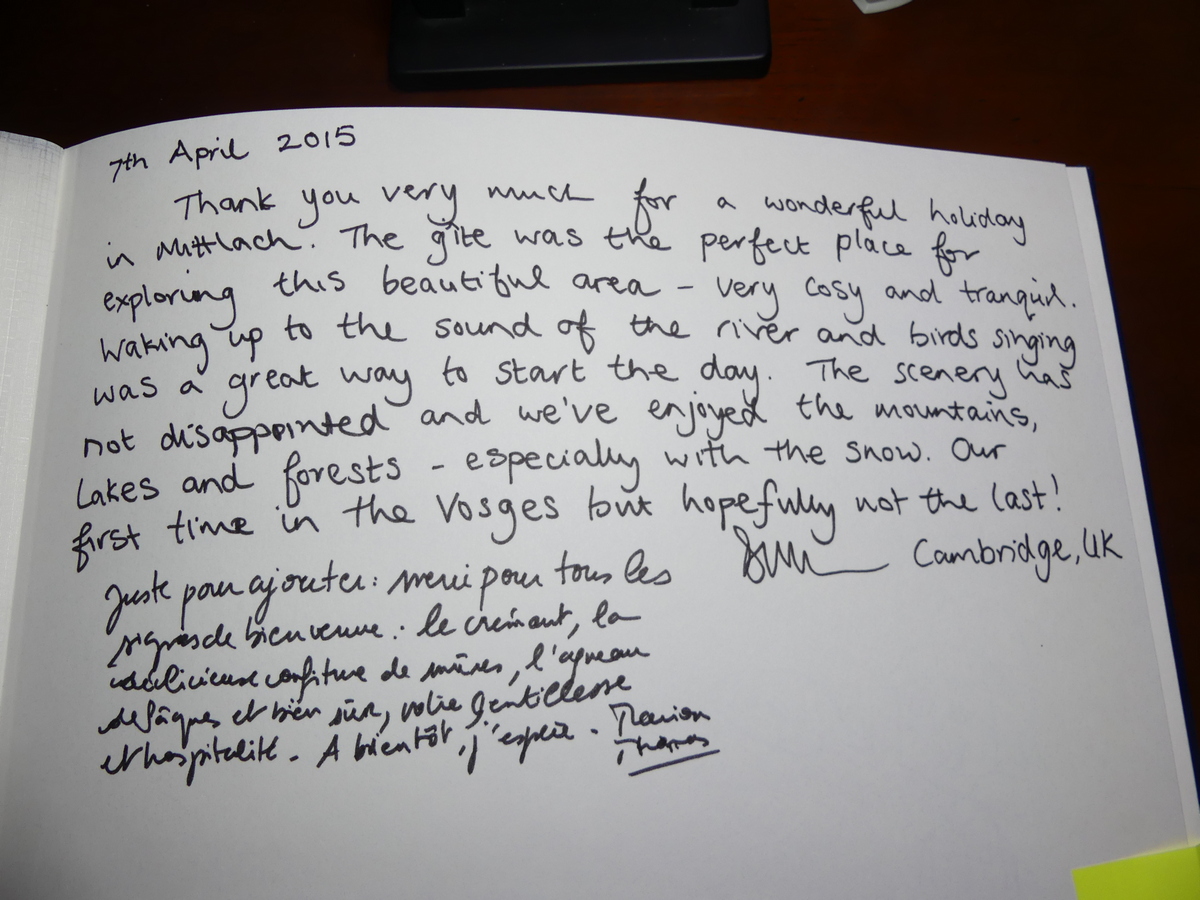 7th April 2015
Thank you very much for a wonderful holiday
in Mittlach. The gîte was the perfect place for
exploring this beautiful area - very cosy and tranquil.
Waking up to the sound of the river and birds singing
was a great way to start the day. The scenery has
not disappointed and we've enjoyed the mountains,
lakes and forests - especially with the snow. Our
first time in the Vosges but hopefully not the last!
Cambridge, UK
Juste pour ajouter: merci pour tous les
signes de bienvenue: le crémant, la
délicieuse confiture de mûres, l'agneau
de Pâques et bien sûr, votre gentillesse
et hospitalité. A bientôt, j'espère. Marion
Thomas